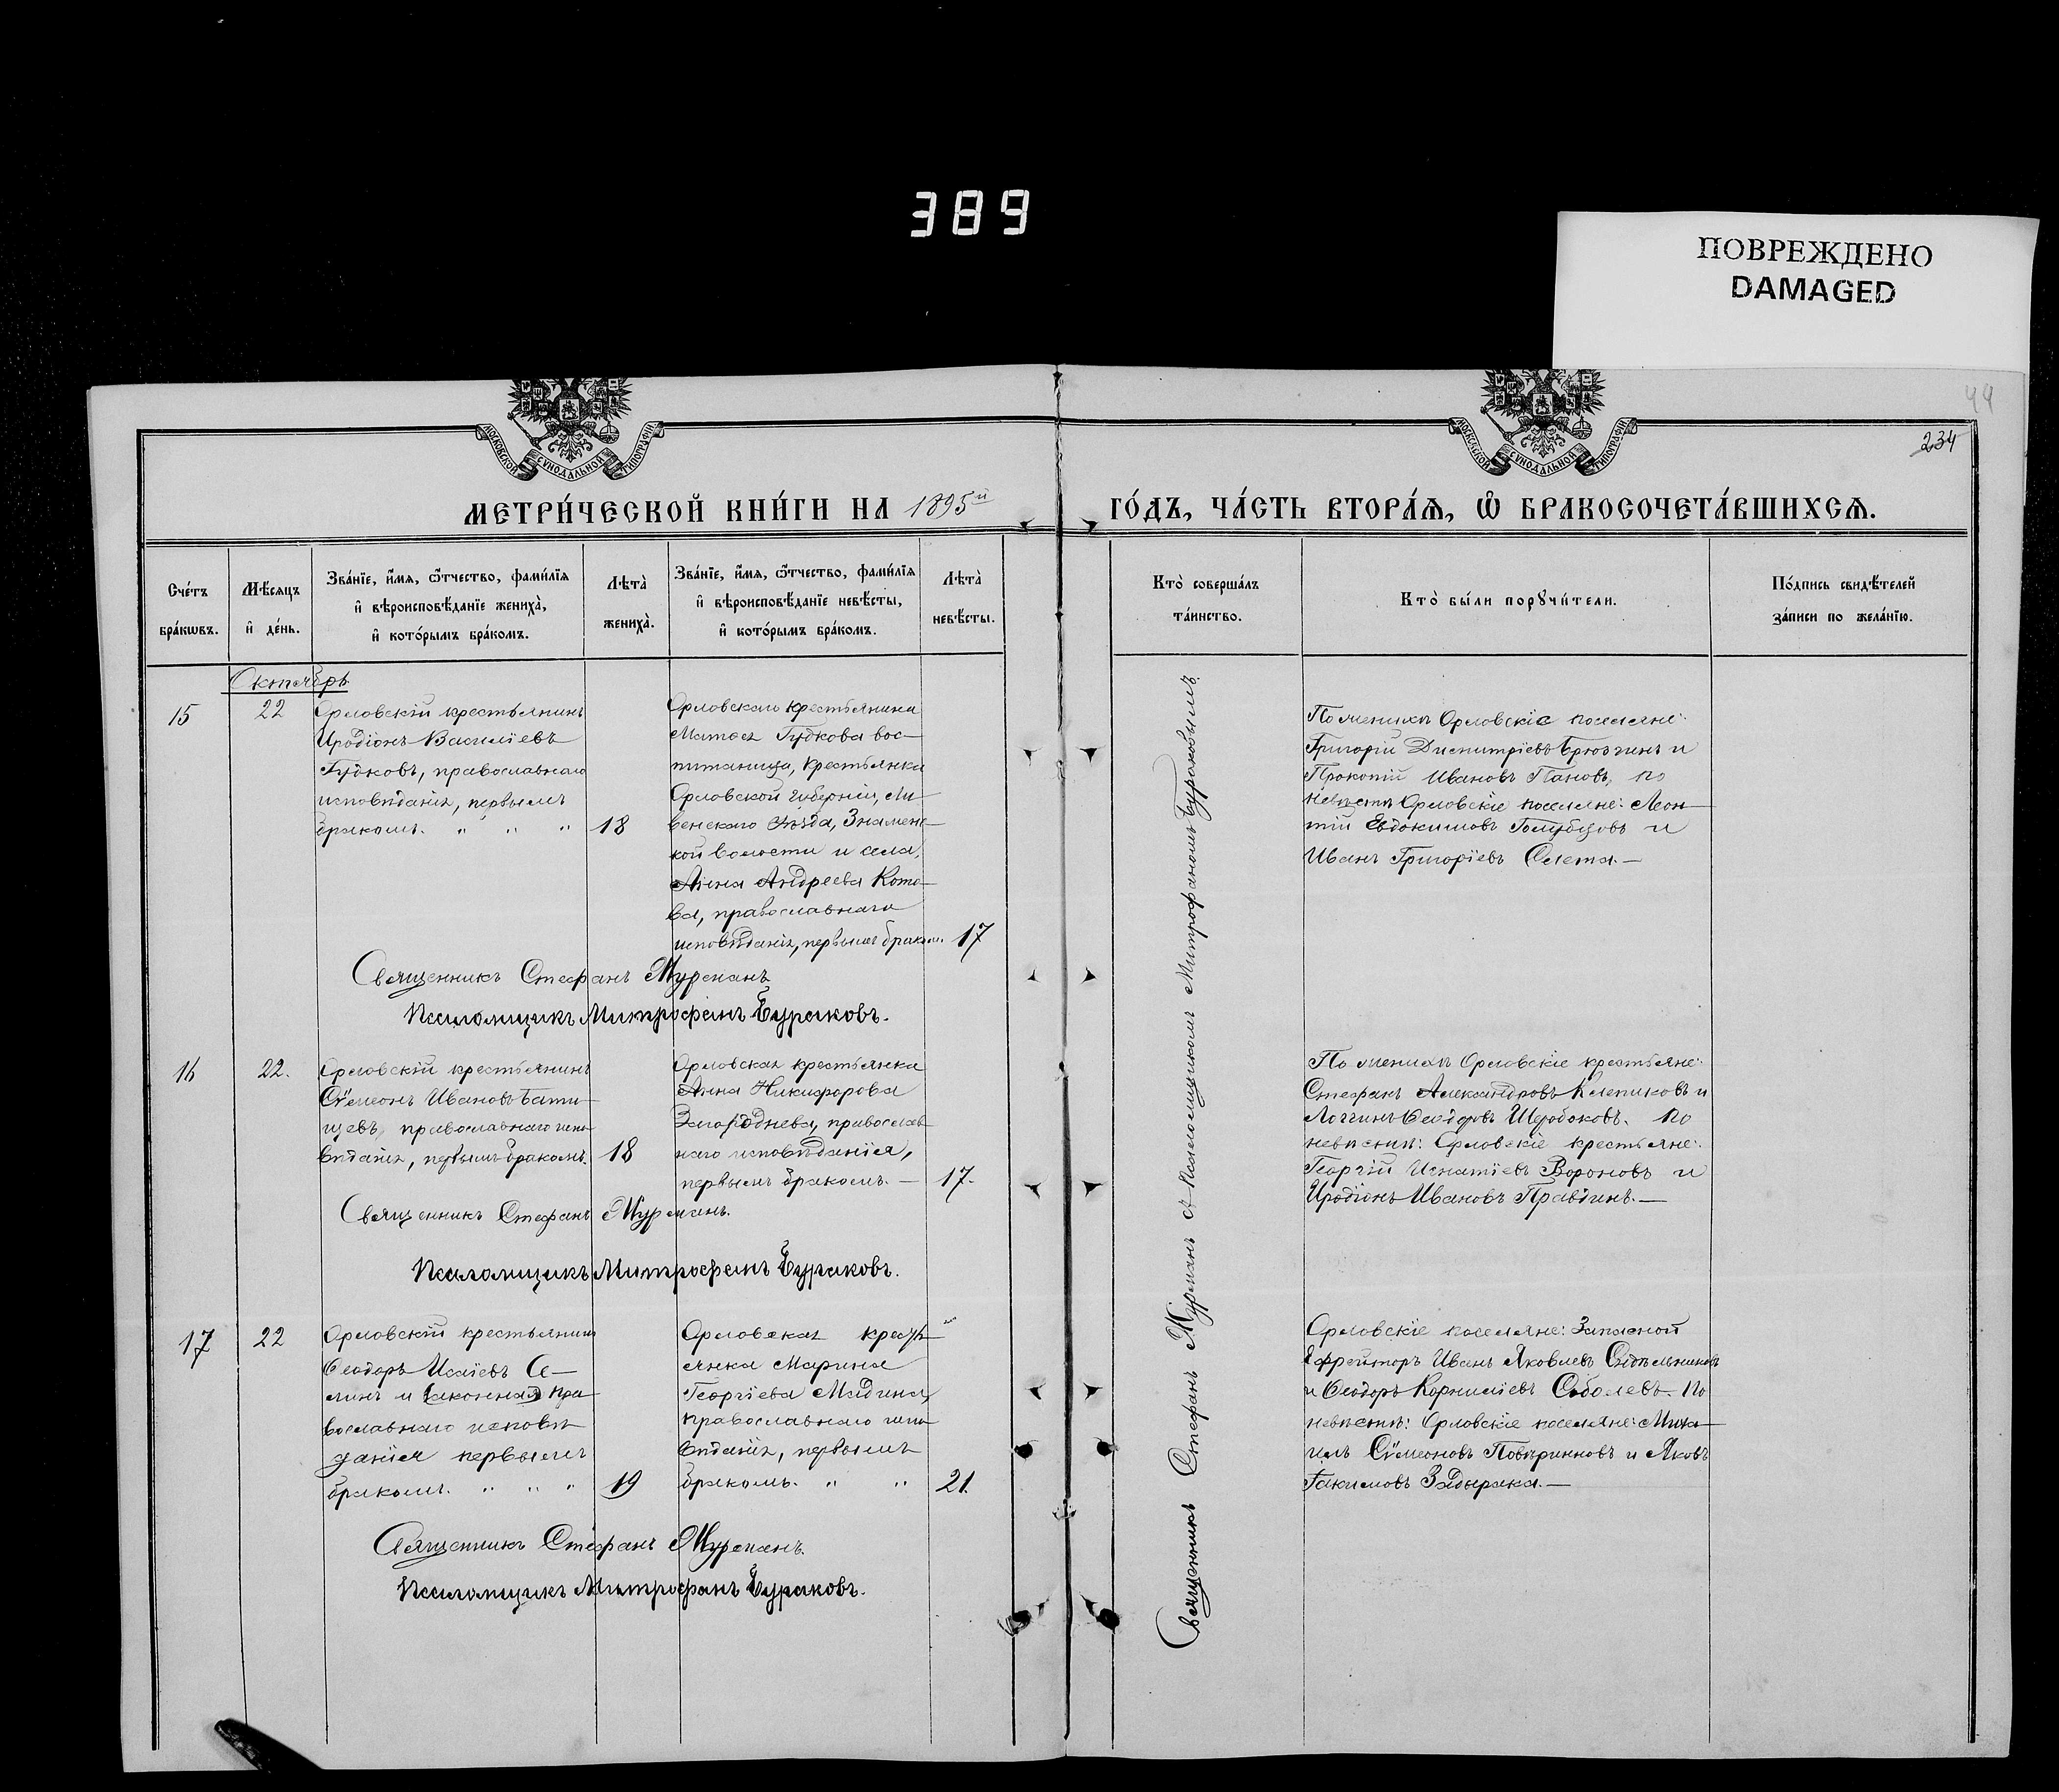 389
ПОВРЕЖДЕНО
DAMAGED
44
234
МОСКОВСКОЙ СУНОДАЛЬНОЙ ТИПОГРАФІИ
МОСКОВСКОЙ СУНОДАЛЬНОЙ ТИПОГРАФІИ
МЕТРИ́ЧЕСКОЙ КНИ́ГИ НА 1895й
ГО́ДЪ, ЧА́СТЬ ВТОРА́Ѧ, Ѽ БРАКОСОЧЕТА́ВШИХСѦ.
Сче́тъ
бра́кѡвъ.
Мѣ́сяцъ
и҆ де́нь.
Зва́нїе, и҆́мѧ, ѻ҆́тчество, фами́лїѧ
и҆ вѣроисповѣ́данїе жениха̀,
и҆ кото́рымъ бра́комъ.
Лѣта̀
жениха̀.
Зва́нїе, и҆́мѧ, ѻ҆́тчество, фами́лїѧ
и҆ вѣроисповѣ́данїе невѣ́сты,
и҆ кото́рымъ бра́комъ.
Лѣта̀
невѣ́сты.
Кто̀ соверша́лъ
та́инство.
Кто̀ бы́ли порꙋчи́тели.
По́дпись свидѣ́телей
за́писи по жела́нїю.
Октябрь
15
22
Орловскій крестьянинъ
Иродіонъ Василіевъ
Гудковъ, православнаго
исповѣданія, первымъ
бракомъ. " " "
18
Орловскаго крестьянина
Гудкова вос-
питаница, крестьянка
Орловской губерніи, Ли-
венскаго уѣзда, Знамен-
кой волости и села,
Анна Андреева Кото-
ва, православнаго
исповѣданія, первымъ браком.
17
По женихѣ Орловскіе поселяне:
Григорій Димитріевъ Брюзгинъ и
Прокопій Ивановъ Пановъ, по
невѣстѣ Орловскіе поселяне: Леон-
тій Евдокимовъ Голубцовъ и
Иванъ Григоріевъ Слета.—
Священникъ Стефанъ Мурепанъ
Псаломщикъ Митрофанъ Бураковъ.
16
22.
Орловскій крестьянинъ
Сѵмеонъ Ивановъ Бати-
щевъ, православнаго испо-
вѣданія, первымъ бракомъ.
18
Орловская крестьянка
Анна Никифорова
Загороднева, православ-
наго исповѣданія,
первымъ бракомъ. —
17.
По женихѣ Орловскіе крестьяне:
Стефанъ Александровъ Клепиковъ и
Логгинъ Ѳеодоровъ Щербоковъ. по
невѣстѣ: Орловскіе крестьяне:
Георгій Игнатіевъ Вороновъ и
Иродіонъ Ивановъ Правдинъ.—
Священникъ Стефанъ Мурепанъ.
Псаломщикъ Митрофанъ Бураковъ.
17
22
Орловскій крестьянинъ
Ѳеодоръ Исаіевъ Се-
линъ и законная пра-
вославнаго исповѣ
данія первымъ
бракомъ. " " "
19
Орловская кресть-
янка Марина
Георгіева Мадина,
православнаго испо-
вѣданія, первымъ
бракомъ. " "
21.
Орловскіе поселяне: Запасной
Ефрейторъ Иванъ Яковлевъ Сидѣльниковъ
и Ѳеодоръ Корниліевъ Соболевъ. По
невѣстѣ: Орловскіе поселяне: Миха-
илъ Сѵмеоновъ Повѣринновъ и Яковъ
Іакимовъ Задырака.—
Священникъ Стефанъ Мурепанъ.
Псаломщикъ Митрофанъ Бураковъ.
Священникъ Стефанъ Мурепанъ съ Псаломщикомъ Митрофаномъ Бураковымъ.